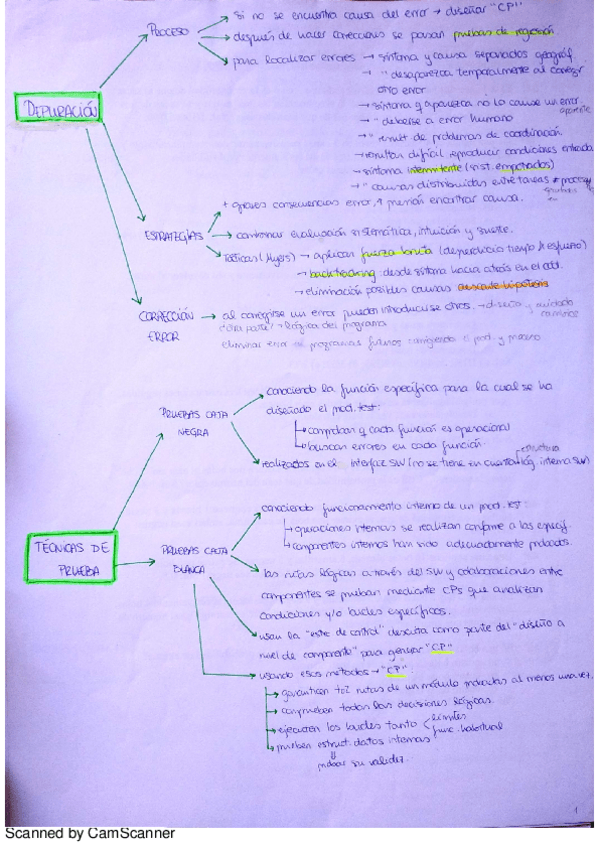 DEPURACIÓN
PROCESO
→ si no se encuentra causa del error → diseñar "CP"
→ después de hacer correcciones se pasan pruebas de regresión
→ para localizar errores → síntoma y causa separados geográf.
→ " desaparezca temporalmente al corregir
otro error
→ síntoma q aparezca no la cause un error
aparente
→ " deberse a error humano
→ " result de problemas de coordinación.
→ resultan difícil reproducir condiciones entrada
→ síntoma intermitente (sist. empotrados)
→ " causas distribuidas entre tareas
ESTRATEGIAS
+ graves consecuencias error, ↑ presión encontrar causa.
→ combinar evaluación sistemática, intuición y suerte.
Tácticas (Myers) → aplicar fuerza bruta (desperdicio tiempo y esfuerzo)
→ backtracking: desde síntoma hacia atrás en el cód.
→ eliminación posibles causas descarte hipótesis
CORRECCIÓN
ERROR
→ al corregirse un error pueden introducirse otros. → diseña y cuidado
cambios
lógica del programa
eliminar error al programas futuros corrigiendo prod. y proceso
TÉCNICAS DE
PRUEBA
PRUEBAS CAJA
NEGRA
conociendo la función específica para la cual se ha
diseñado el prod. test:
→ comprobar q cada función es operacional
→ buscan errores en cada función.
estructura
realizados en el interface SW (no se tiene en cuenta lóg. interna SW)
PRUEBAS CAJA
BLANCA
conociendo funcionamiento interno de un prod. test:
→ operaciones internas se realizan conforme a las especif.
→ componentes internos han sido adecuadamente probados.
las rutas lógicas a través del SW y colaboraciones entre
componentes se prueban mediante CPs que analizan
condiciones y/o bucles específicos.
usan la "estr de control" descrita como parte del "diseño a
nivel de componente" para generar "CP"
usando esos métodos → "CP"
→ garanticen tod rutas de un módulo probadas al menos una vez.
→ comprueben todas las decisiones lógicas.
→ ejecuten los bucles tanto límites
func. habitual
→ prueben estruct. datos internas
probar su validez.
1
Scanned by CamScanner